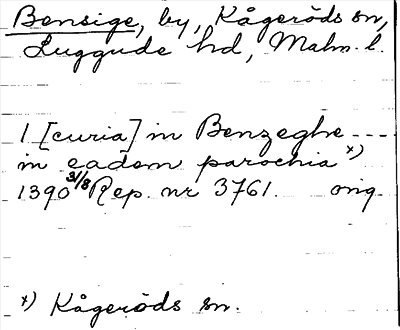 Bensige, by, Kågeröds sn,
Luggude hd, Malm. l.
1 [curia] in Benzeghe ----
in eadem parochia x)
1390 31/8 Rep. nr 3761. orig.
x) Kågeröds sn.